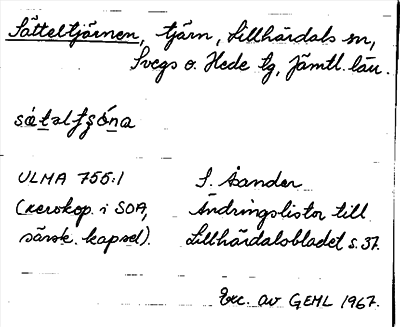 Sätteltjärnen, tjärn, Lillhärdals sn,
Svegs o. Hede tg, Jämtl. län.
ULMA 755:1
(xerokop. i SOA,
särsk. kapsel).
S. Sander
Ändringslistor till
Lillhärdalsbladet s. 37.
Exc. av GEHL 1967.